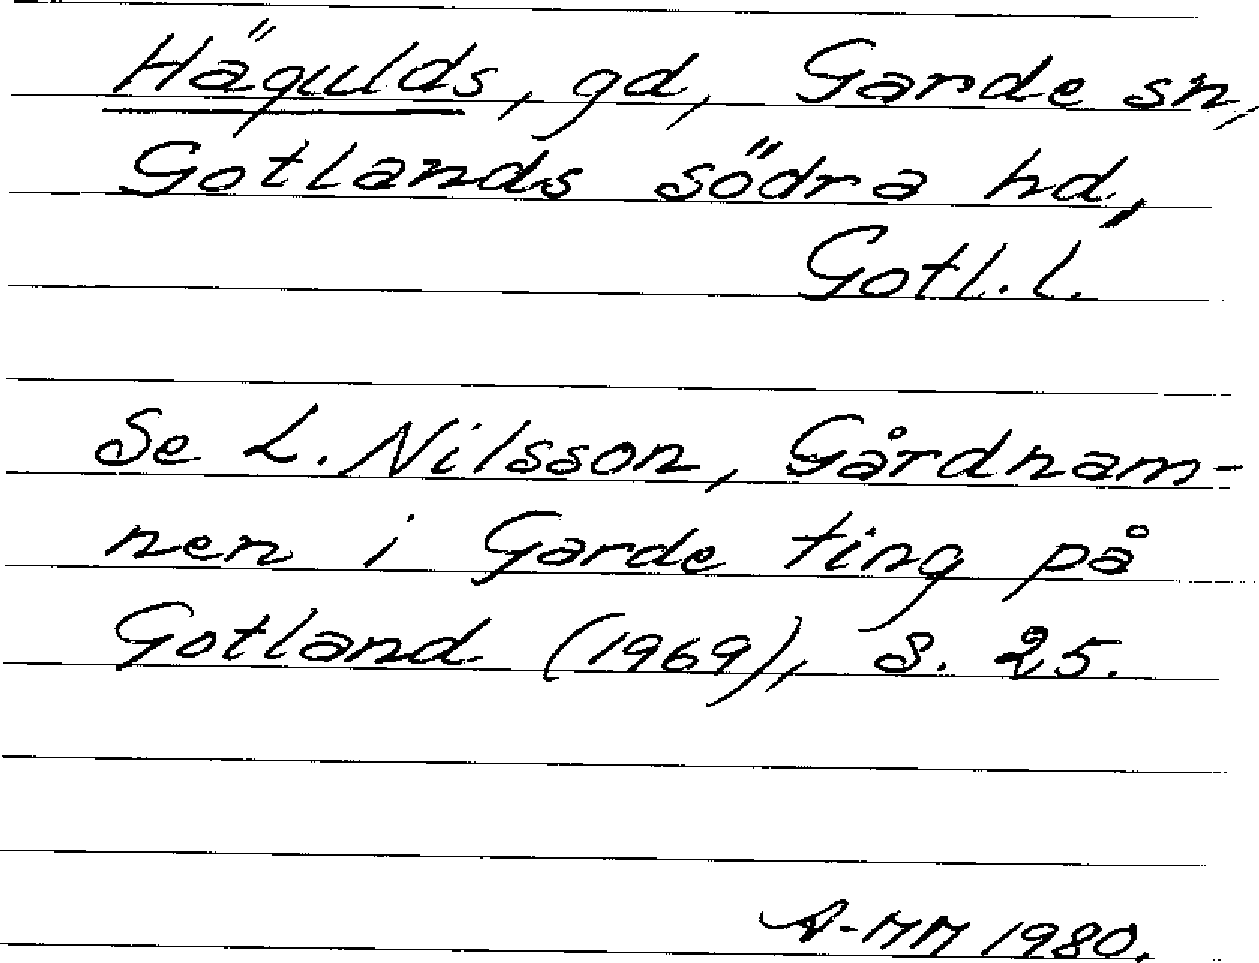 Hägulds, gd, Garde sn,
Gotlands södra hd,
Gotl. l.
Se L. Nilsson, Gårdnam-
nen i Garde ting på
Gotland (1969), s. 25.
A-MM 1980.